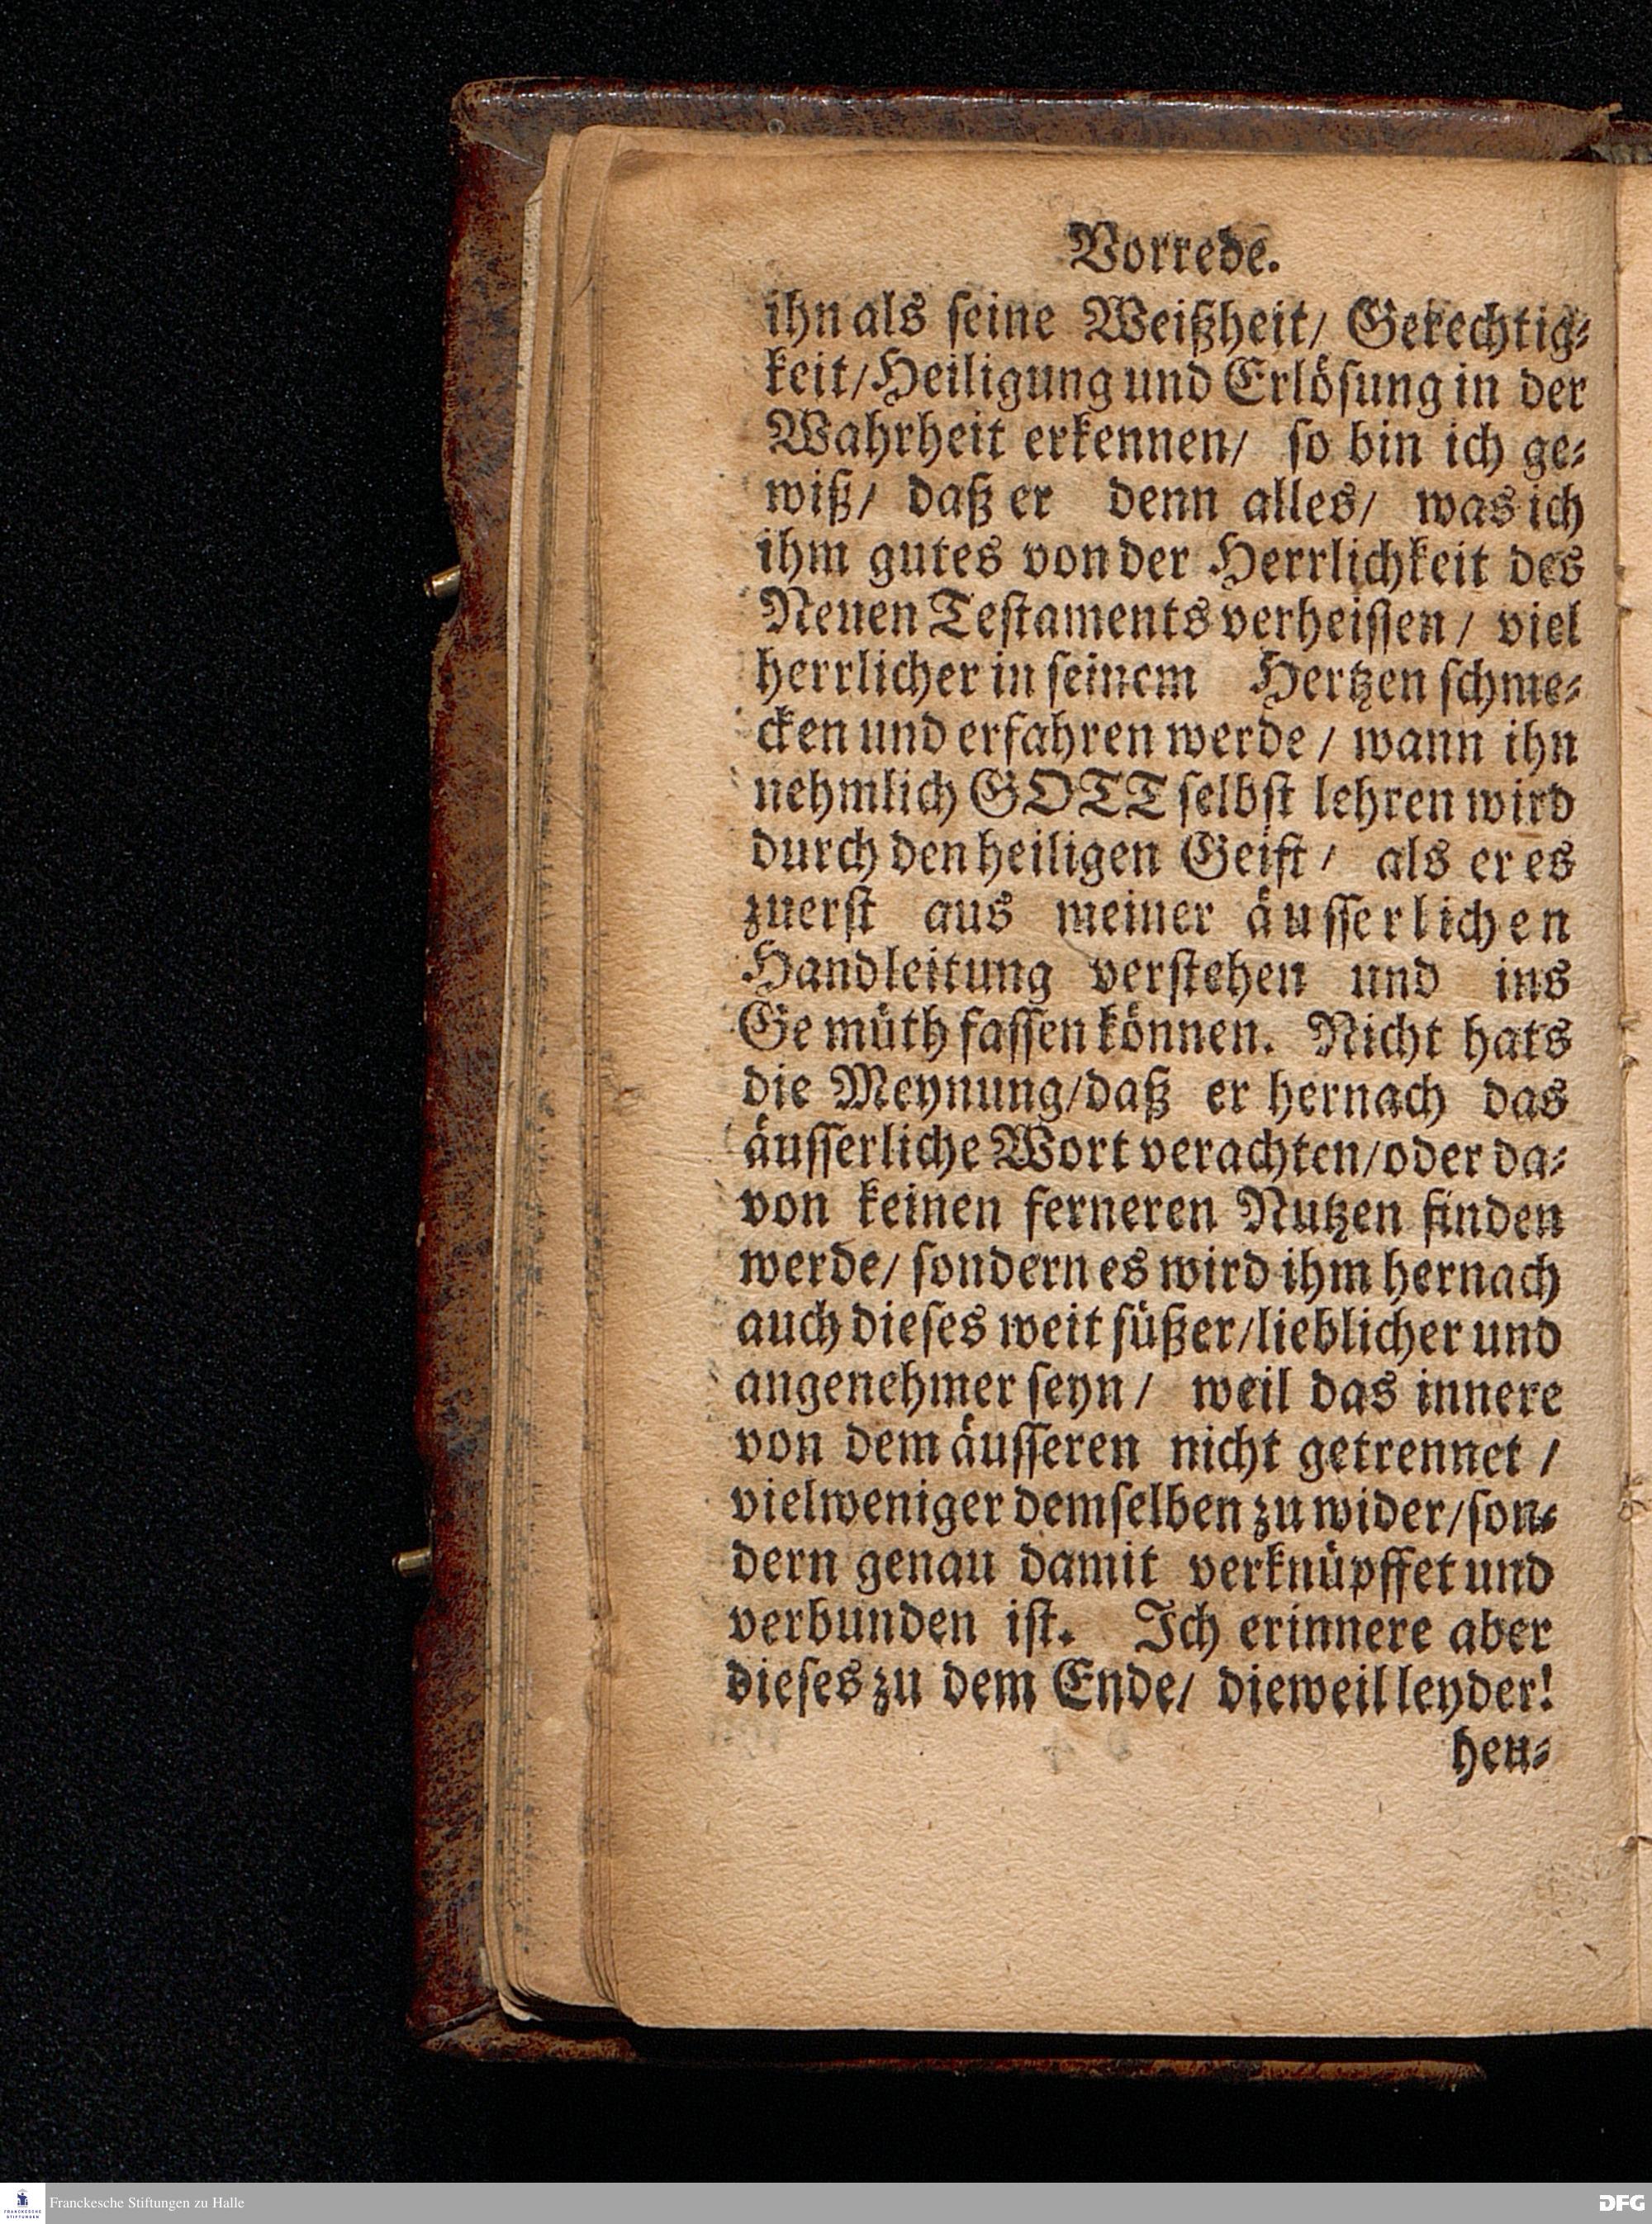 Vorrede.
ihn als ſeine Weißheit/ Gerechtig⸗
keit/Heiligung und Erlöſung in der
Wahrheit erkennen/ ſo bin ich ge⸗
wiß/ daß er denn alles/ was ich
ihm gutes von der Herrlichkeit des
Neuen Teſtaments verheiſſen/ viel
herrlicher in ſeinem Hertzen ſchme⸗
cken und erfahren werde/ wann ihn
nehmlich GOTT ſelbſt lehren wird
durch den heiligen Geiſt/ als er es
zuerſt aus meiner äuſſerlichen
Handleitung verſtehen und ins
Ge müth faſſen können. Nicht hats
die Meynung/daß er hernach das
äuſſerliche Wort verachten/oder da⸗
von keinen ferneren Nutzen finden
werde/ ſondern es wird ihm hernach
auch dieſes weit ſüßer/lieblicher und
angenehmer ſeyn/ weil das innere
von dem äuſſeren nicht getrennet/
vielweniger demſelben zu wider/ſon⸗
dern genau damit verknüpffet und
verbunden iſt. Ich erinnere aber
dieſes zu dem Ende/ dieweil leyder!
heu⸗
Franckesche Stiftungen zu Halle
DFG